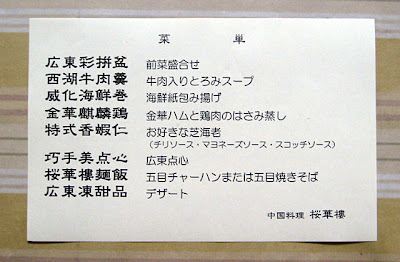 菜単
広東彩拼盆 前菜盛合せ
西湖牛肉羹 牛肉入りとろみスープ
威化海鮮巻 海鮮紙包み揚げ
金華麒麟鶏 金華ハムと鶏肉のはさみ蒸し
特式香蝦仁 お好きな芝海老
（チリソース・マヨネーズソース・スコッチソース）
巧手美点心 広東点心
桜華樓麺飯 五目チャーハンまたは五目焼きそば
広東凍甜品 デザート
中国料理 桜華樓